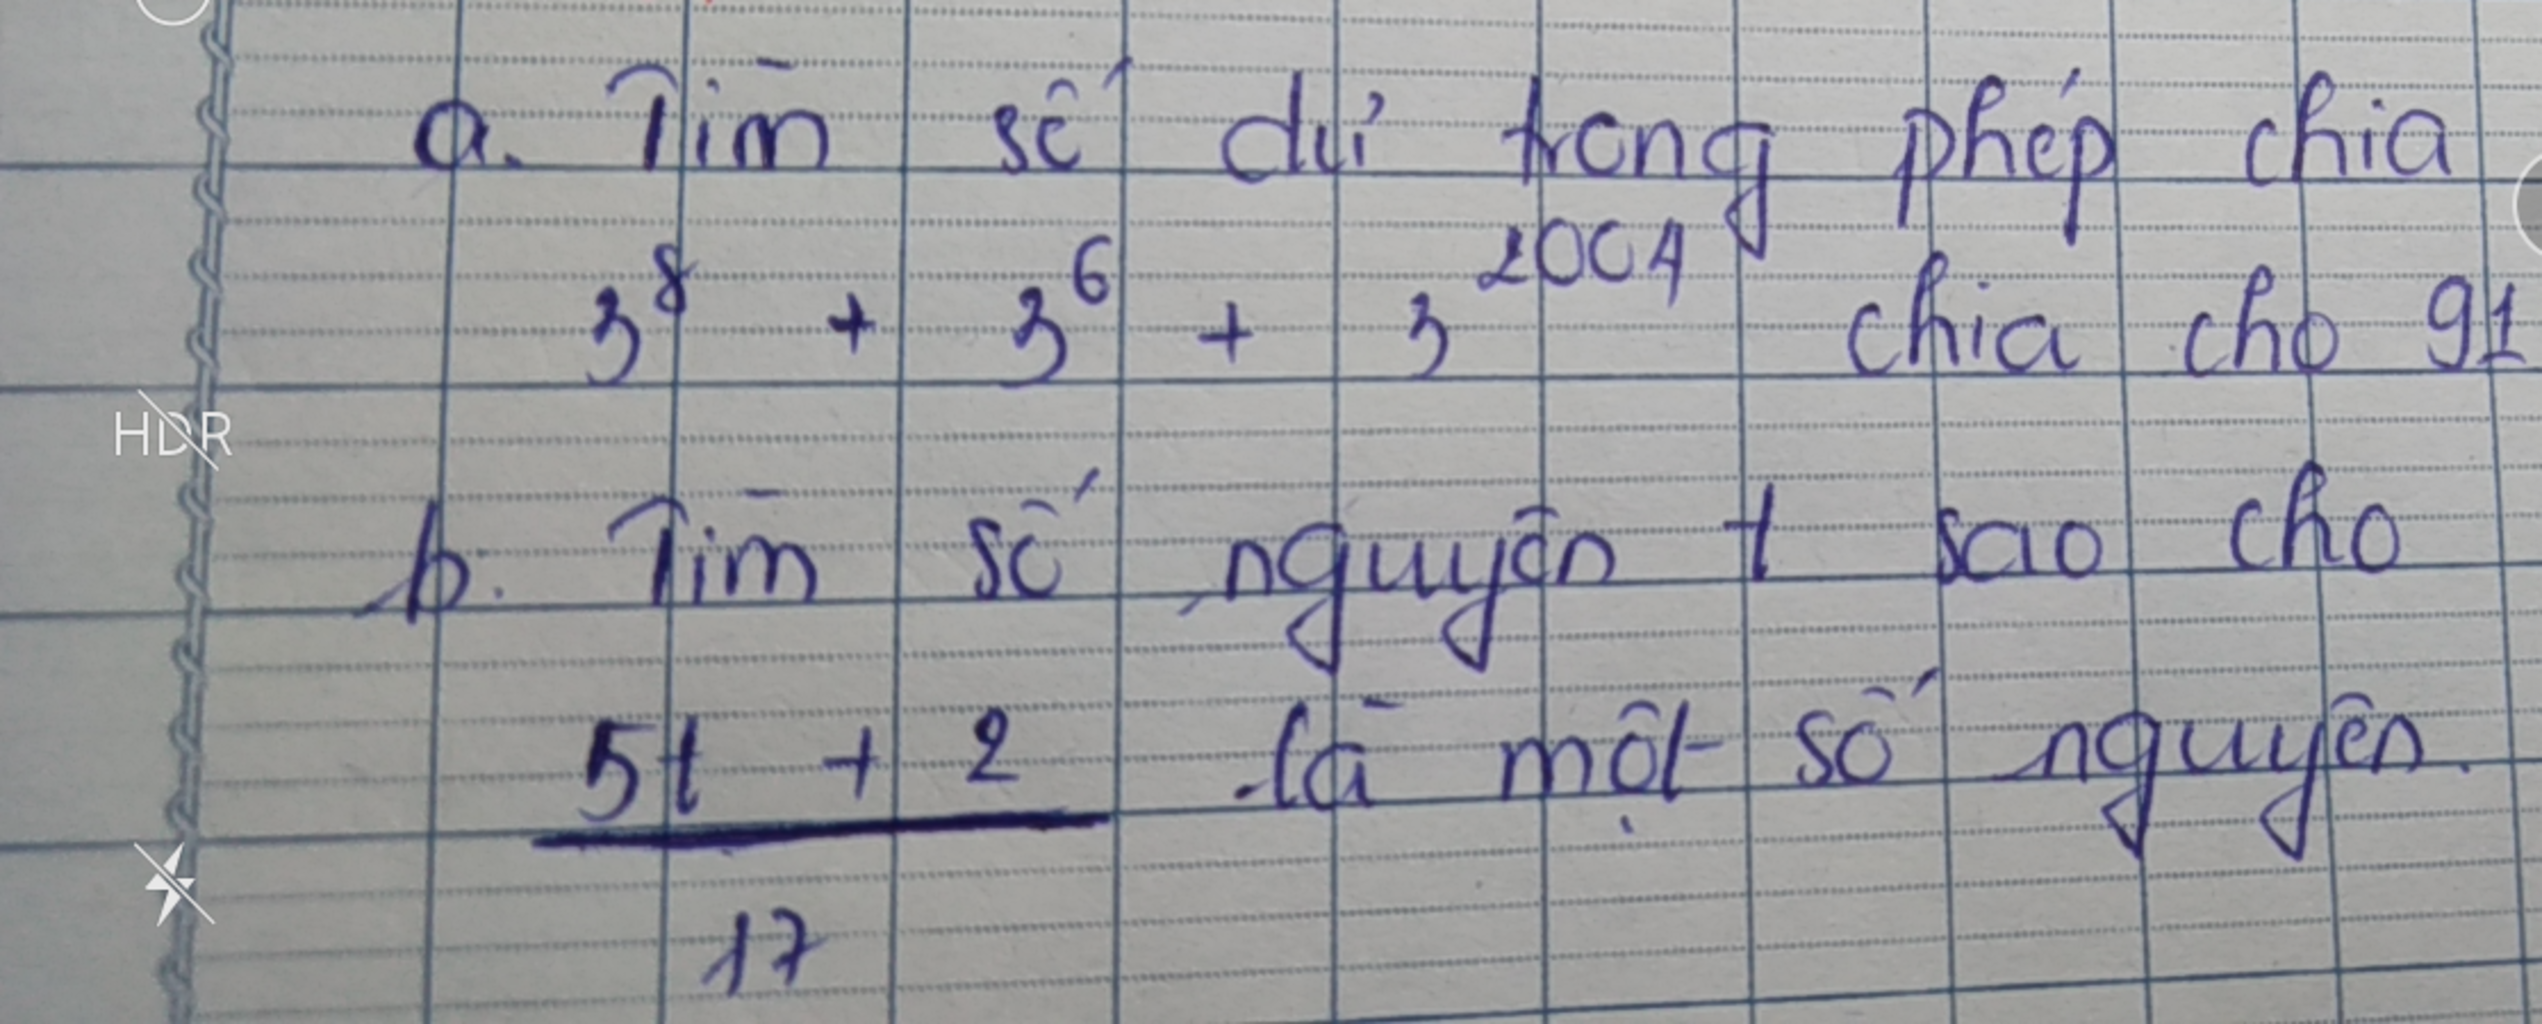 a. Tìm số dư trong phép chia
3⁸ + 3⁶ + 3²⁰⁰⁴ chia cho 91
b. Tìm số nguyên t sao cho
5t + 2 là một số nguyên.
17
HDR